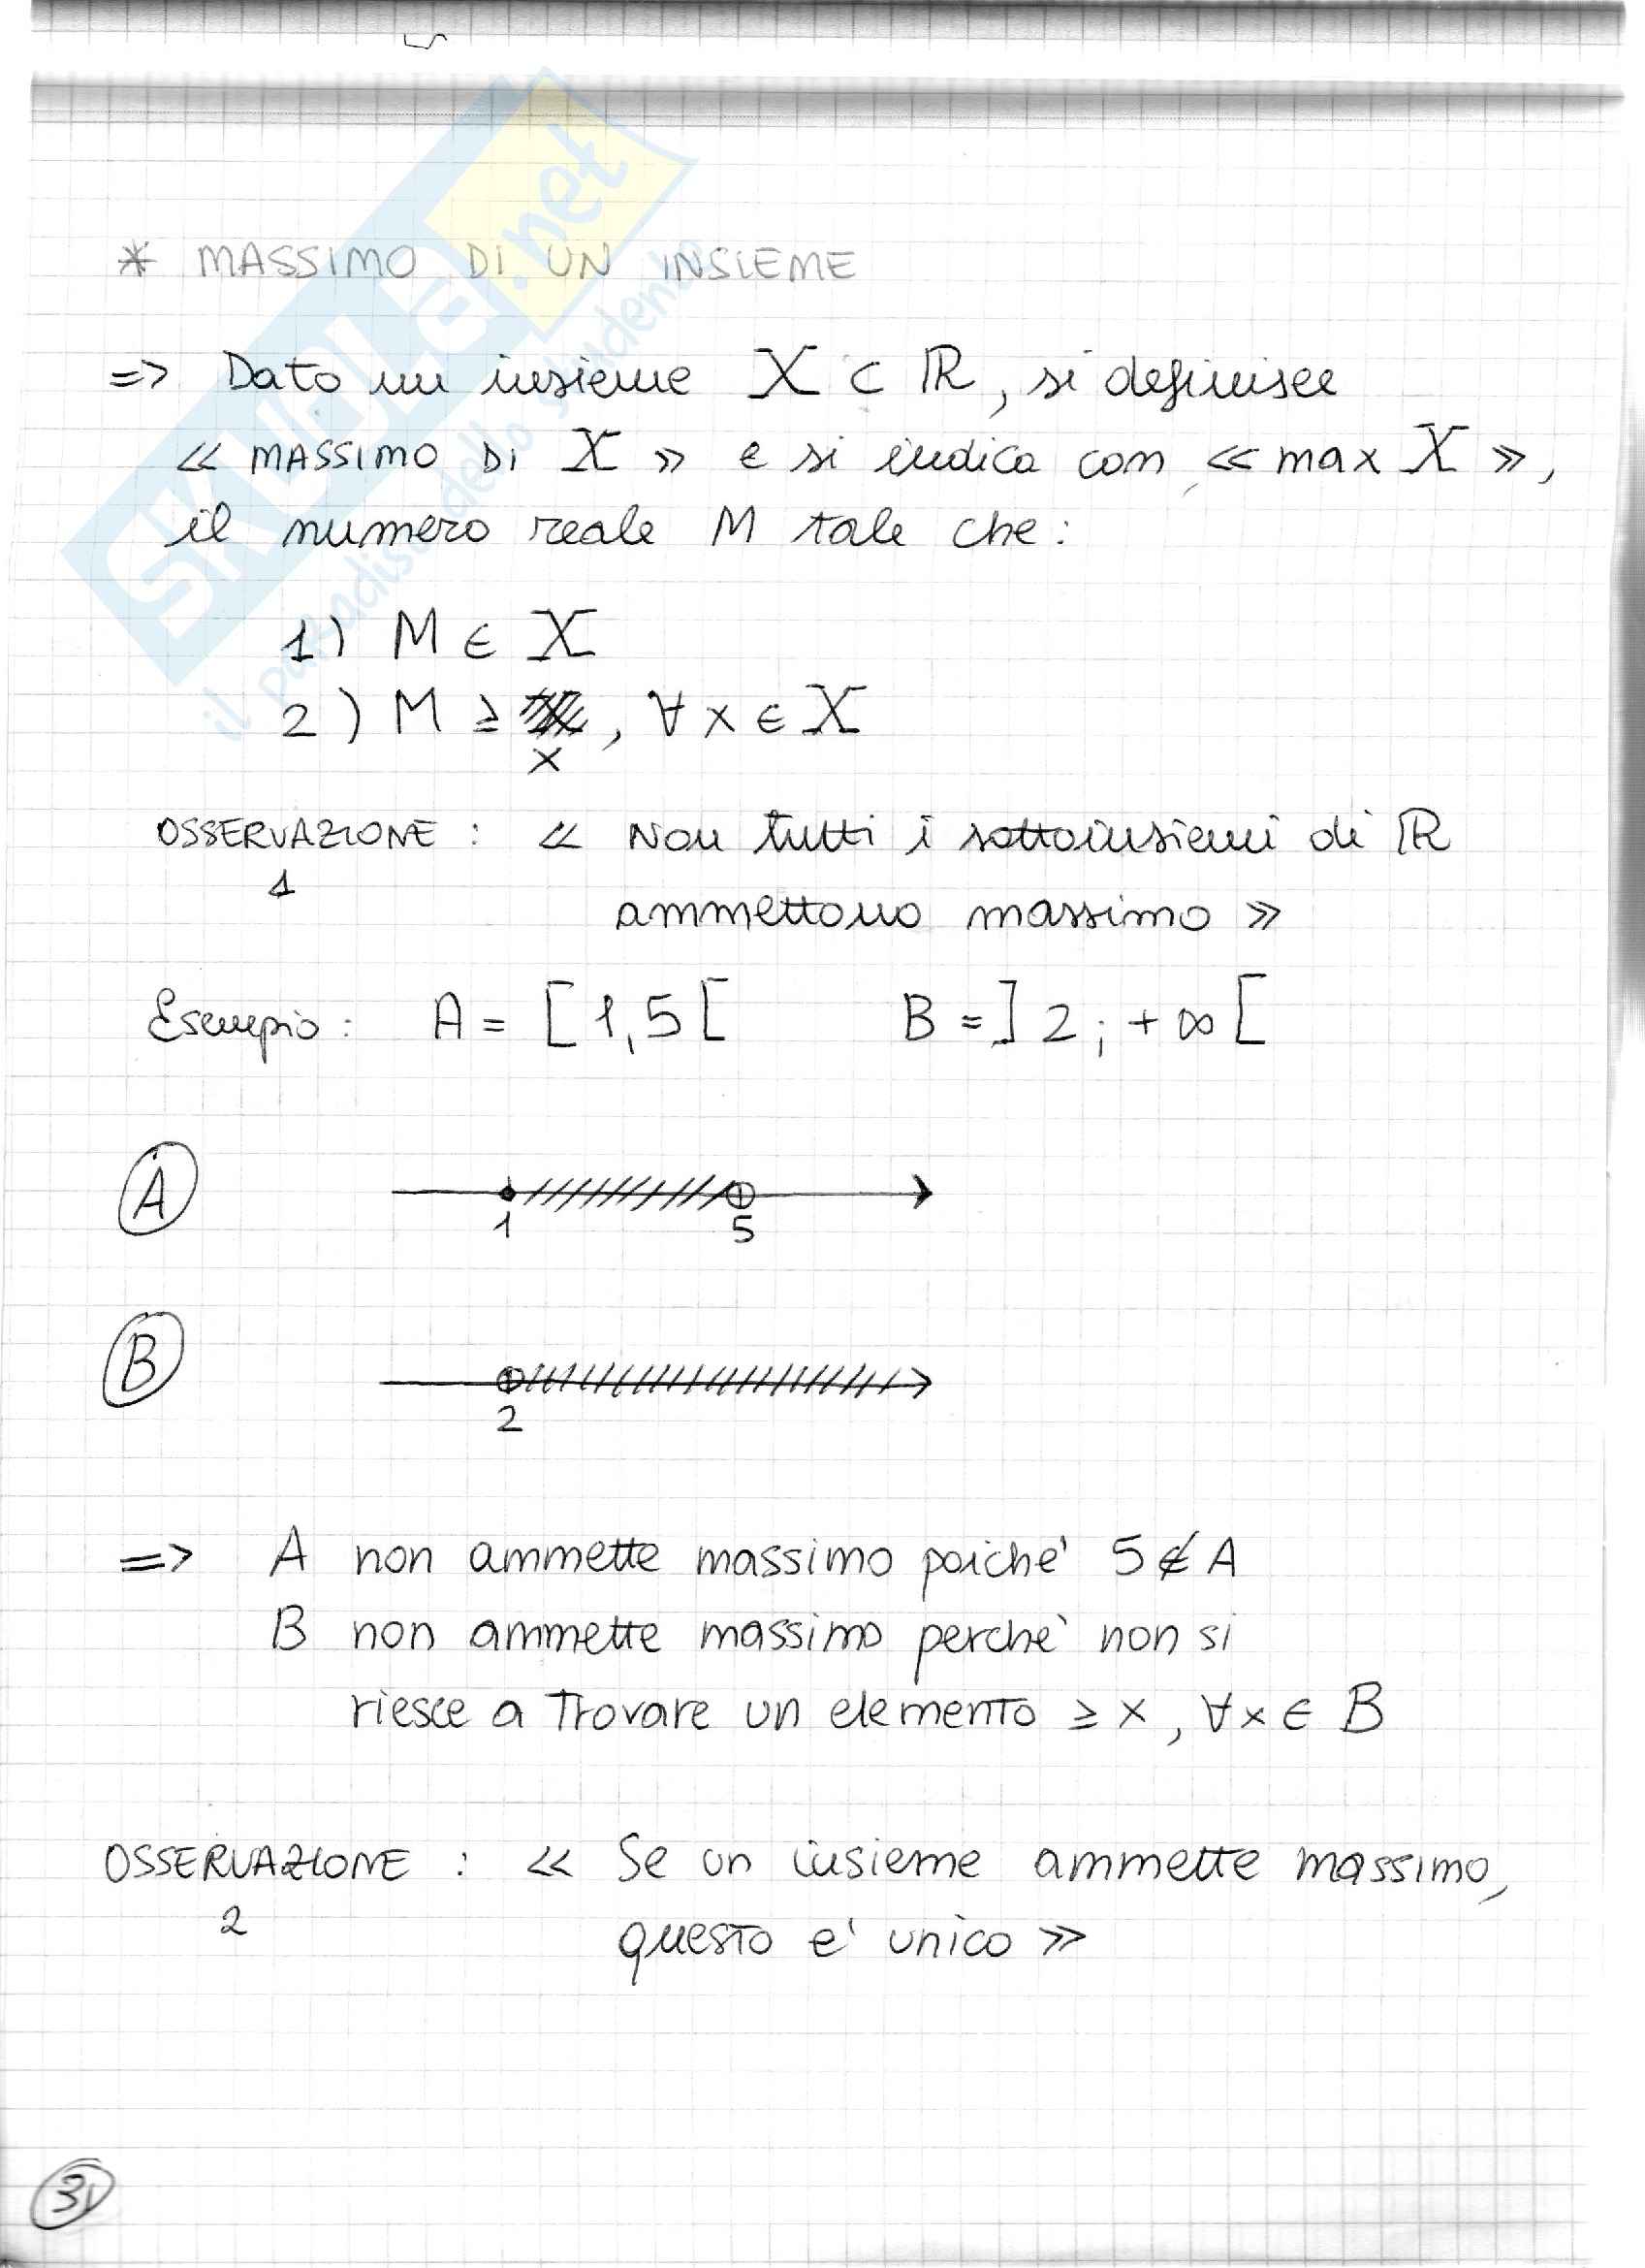 * MASSIMO DI UN INSIEME
=> Dato un insieme X ⊂ ℝ, si definisce
« MASSIMO DI X » e si indica con « max X »,
il numero reale M tale che:
1) M ∈ X
2) M ≥ x, ∀ x ∈ X
OSSERVAZIONE 1 : « Non tutti i sottoinsiemi di ℝ
ammettono massimo »
Esempio: A = [1,5[ B = ]2; +∞[
A
1 5
B
2
=> A non ammette massimo poiche' 5 ∉ A
B non ammette massimo perche' non si
riesce a trovare un elemento ≥ x, ∀x ∈ B
OSSERVAZIONE 2 : « Se un insieme ammette massimo,
questo e' unico »
SKUOLA.net
il paradiso dello studente